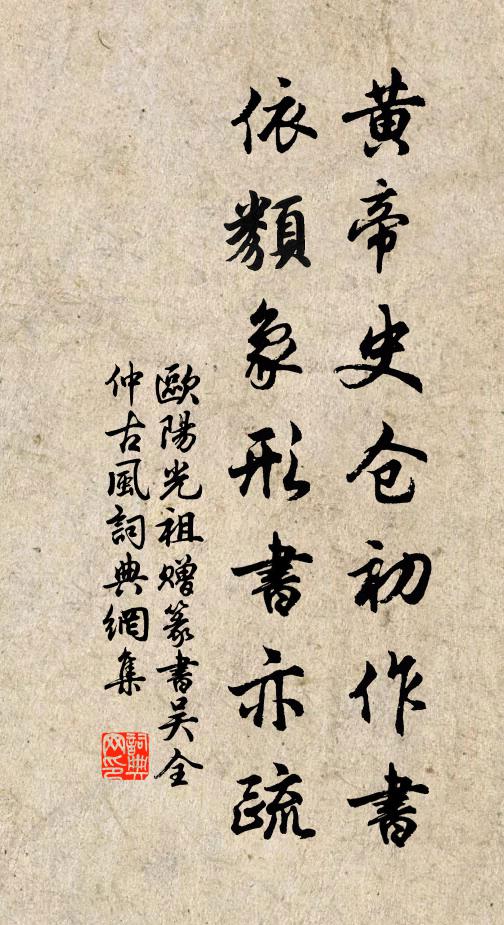 黃帝史仓初作書
依類象形書亦疏
歐陽光祖贈篆書吴全
仲古風詞典網集
詞典
网印